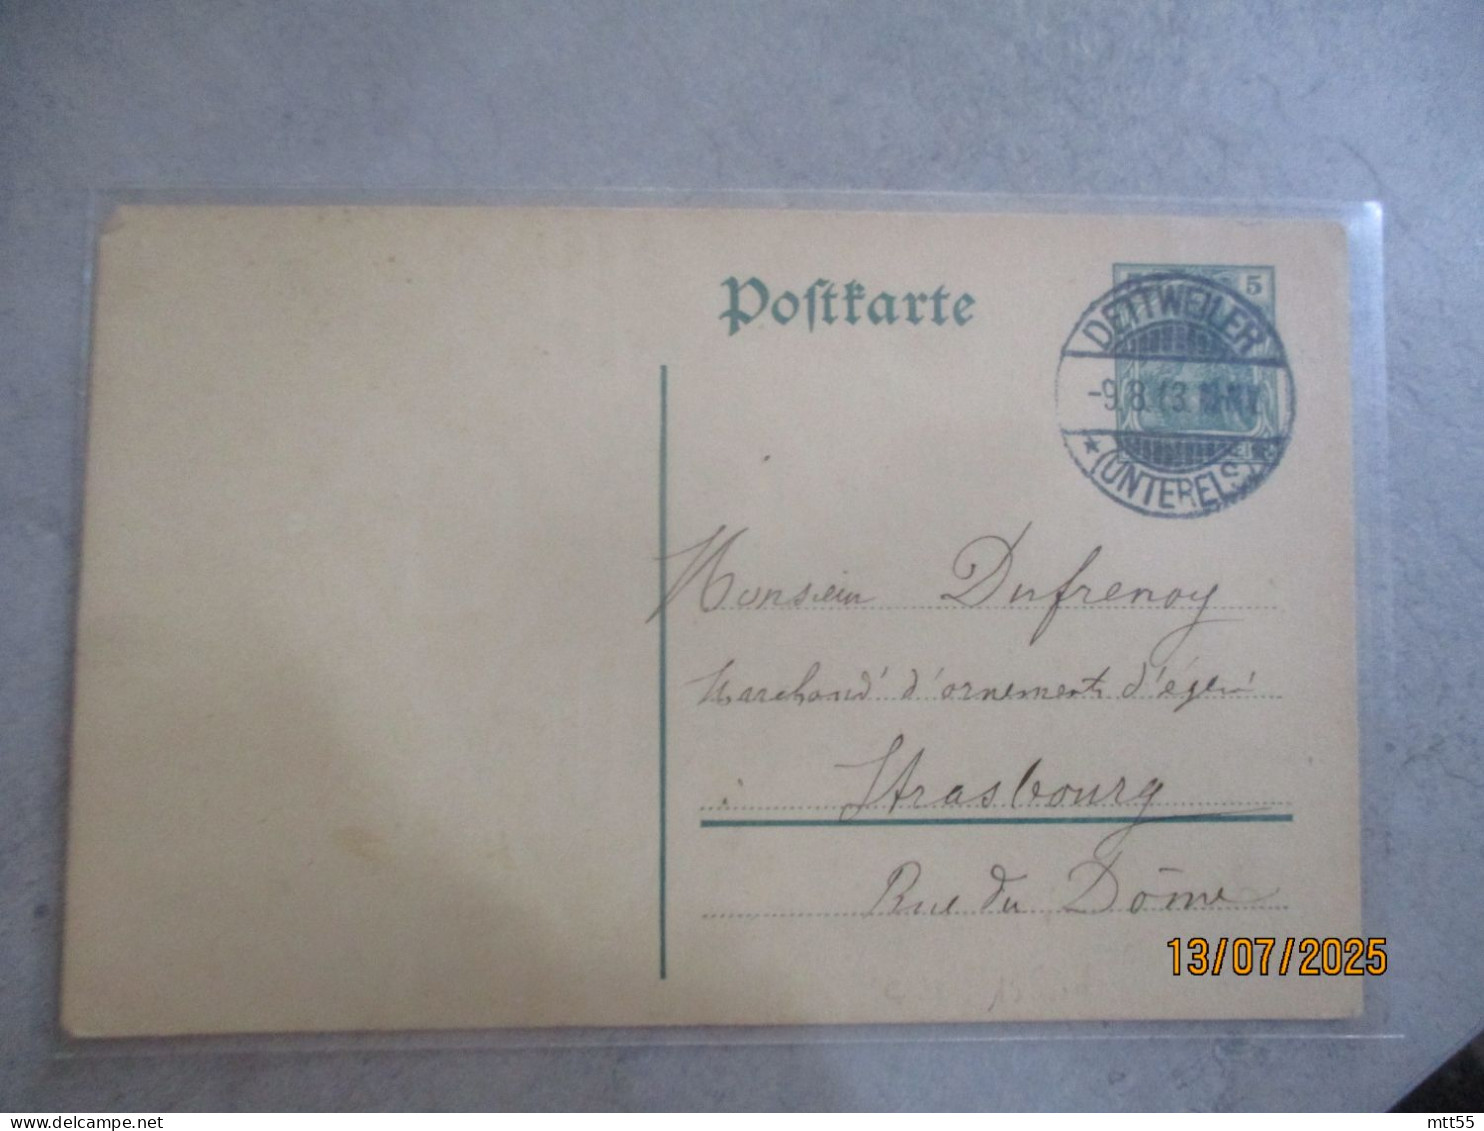 Postkarte
5
DETTWEILER
-9.8.13.
* (UNTERELS.)
Monsieur Dufrenoy
Marchand d'ornements d'église
à Strasbourg
Rue du Dôme
13/07/2025
mtt55